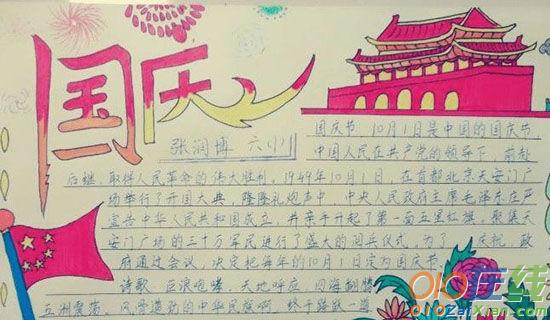 国庆
张润博 六(1)
国庆节 10月1日是中国的国庆节,
中国人民在共产党的领导下,前赴
后继,取得人民革命的伟大胜利,1949年10月1日,在首都北京天安门广
场举行了开国大典,隆隆礼炮声中,中央人民政府主席毛泽东庄严
宣告中华人民共和国成立,并亲手升起了第一面五星红旗,聚集天
安门广场的三十万军民进行了盛大的阅兵仪式,为了 庆祝,政
府通过会议,决定把每年的10月1日定为国庆节。
诗歌 巨浪咆哮,天地呼应 四海翻腾
五洲震荡,风雪造就的中华民族啊 终于
在线
ZaiXian.com